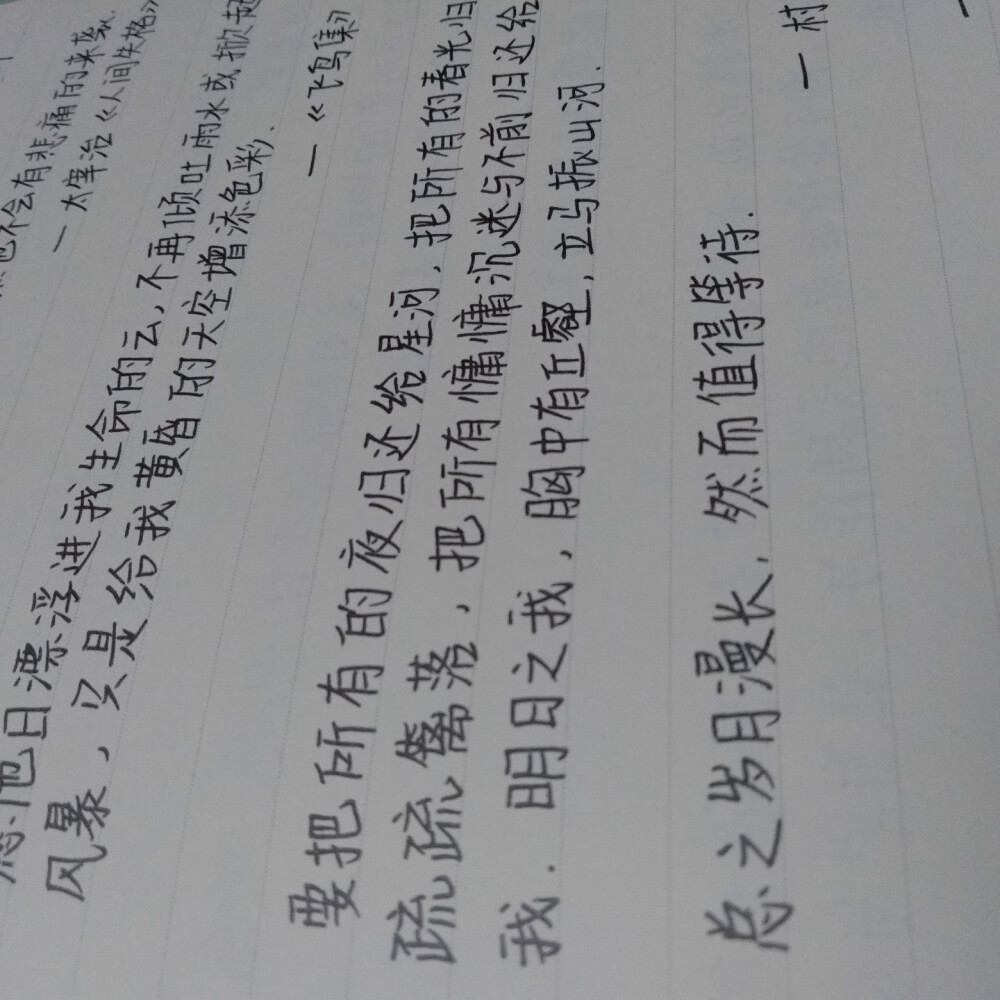 也不会有悲痛的来袭.
—太宰治《人间失格》
他日漂浮进我生命的云,不再倾吐雨水或掀起
风暴,只是给我黄昏的天空增添色彩.
—《飞鸟集》
要把所有的夜归还给星河,把所有的春光归
疏疏篱落,把所有慵慵沉迷与不前归还给
我.明日之我,胸中有丘壑,立马振山河.
总之岁月漫长.然而值得等待.
—村